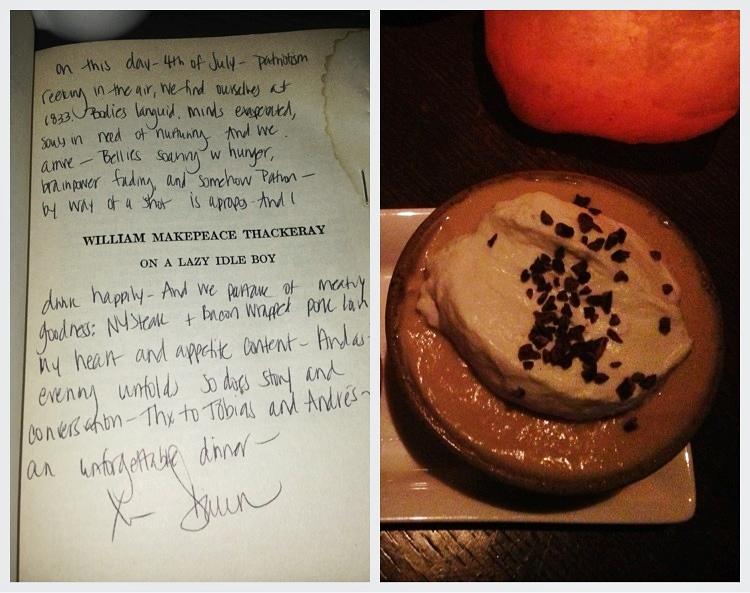 on this day - 4th of July - patriotism
reeking in the air, we find ourselves at
1833. Bodies languid, minds exasperated,
souls in need of nurturing. And we
arrive - Bellies soaring w hunger,
brainpower fading, and somehow Patron -
by way of a shot is apropos - And I
WILLIAM MAKEPEACE THACKERAY
ON A LAZY IDLE BOY
drink happily - And we partake of meaty
goodness: NY Steak + Bacon Wrapped pork loin
my heart and appetite content - And as
evening unfolds so does story and
conversation - Thx to Tobias and Andrés -
an unforgettable dinner -
X -